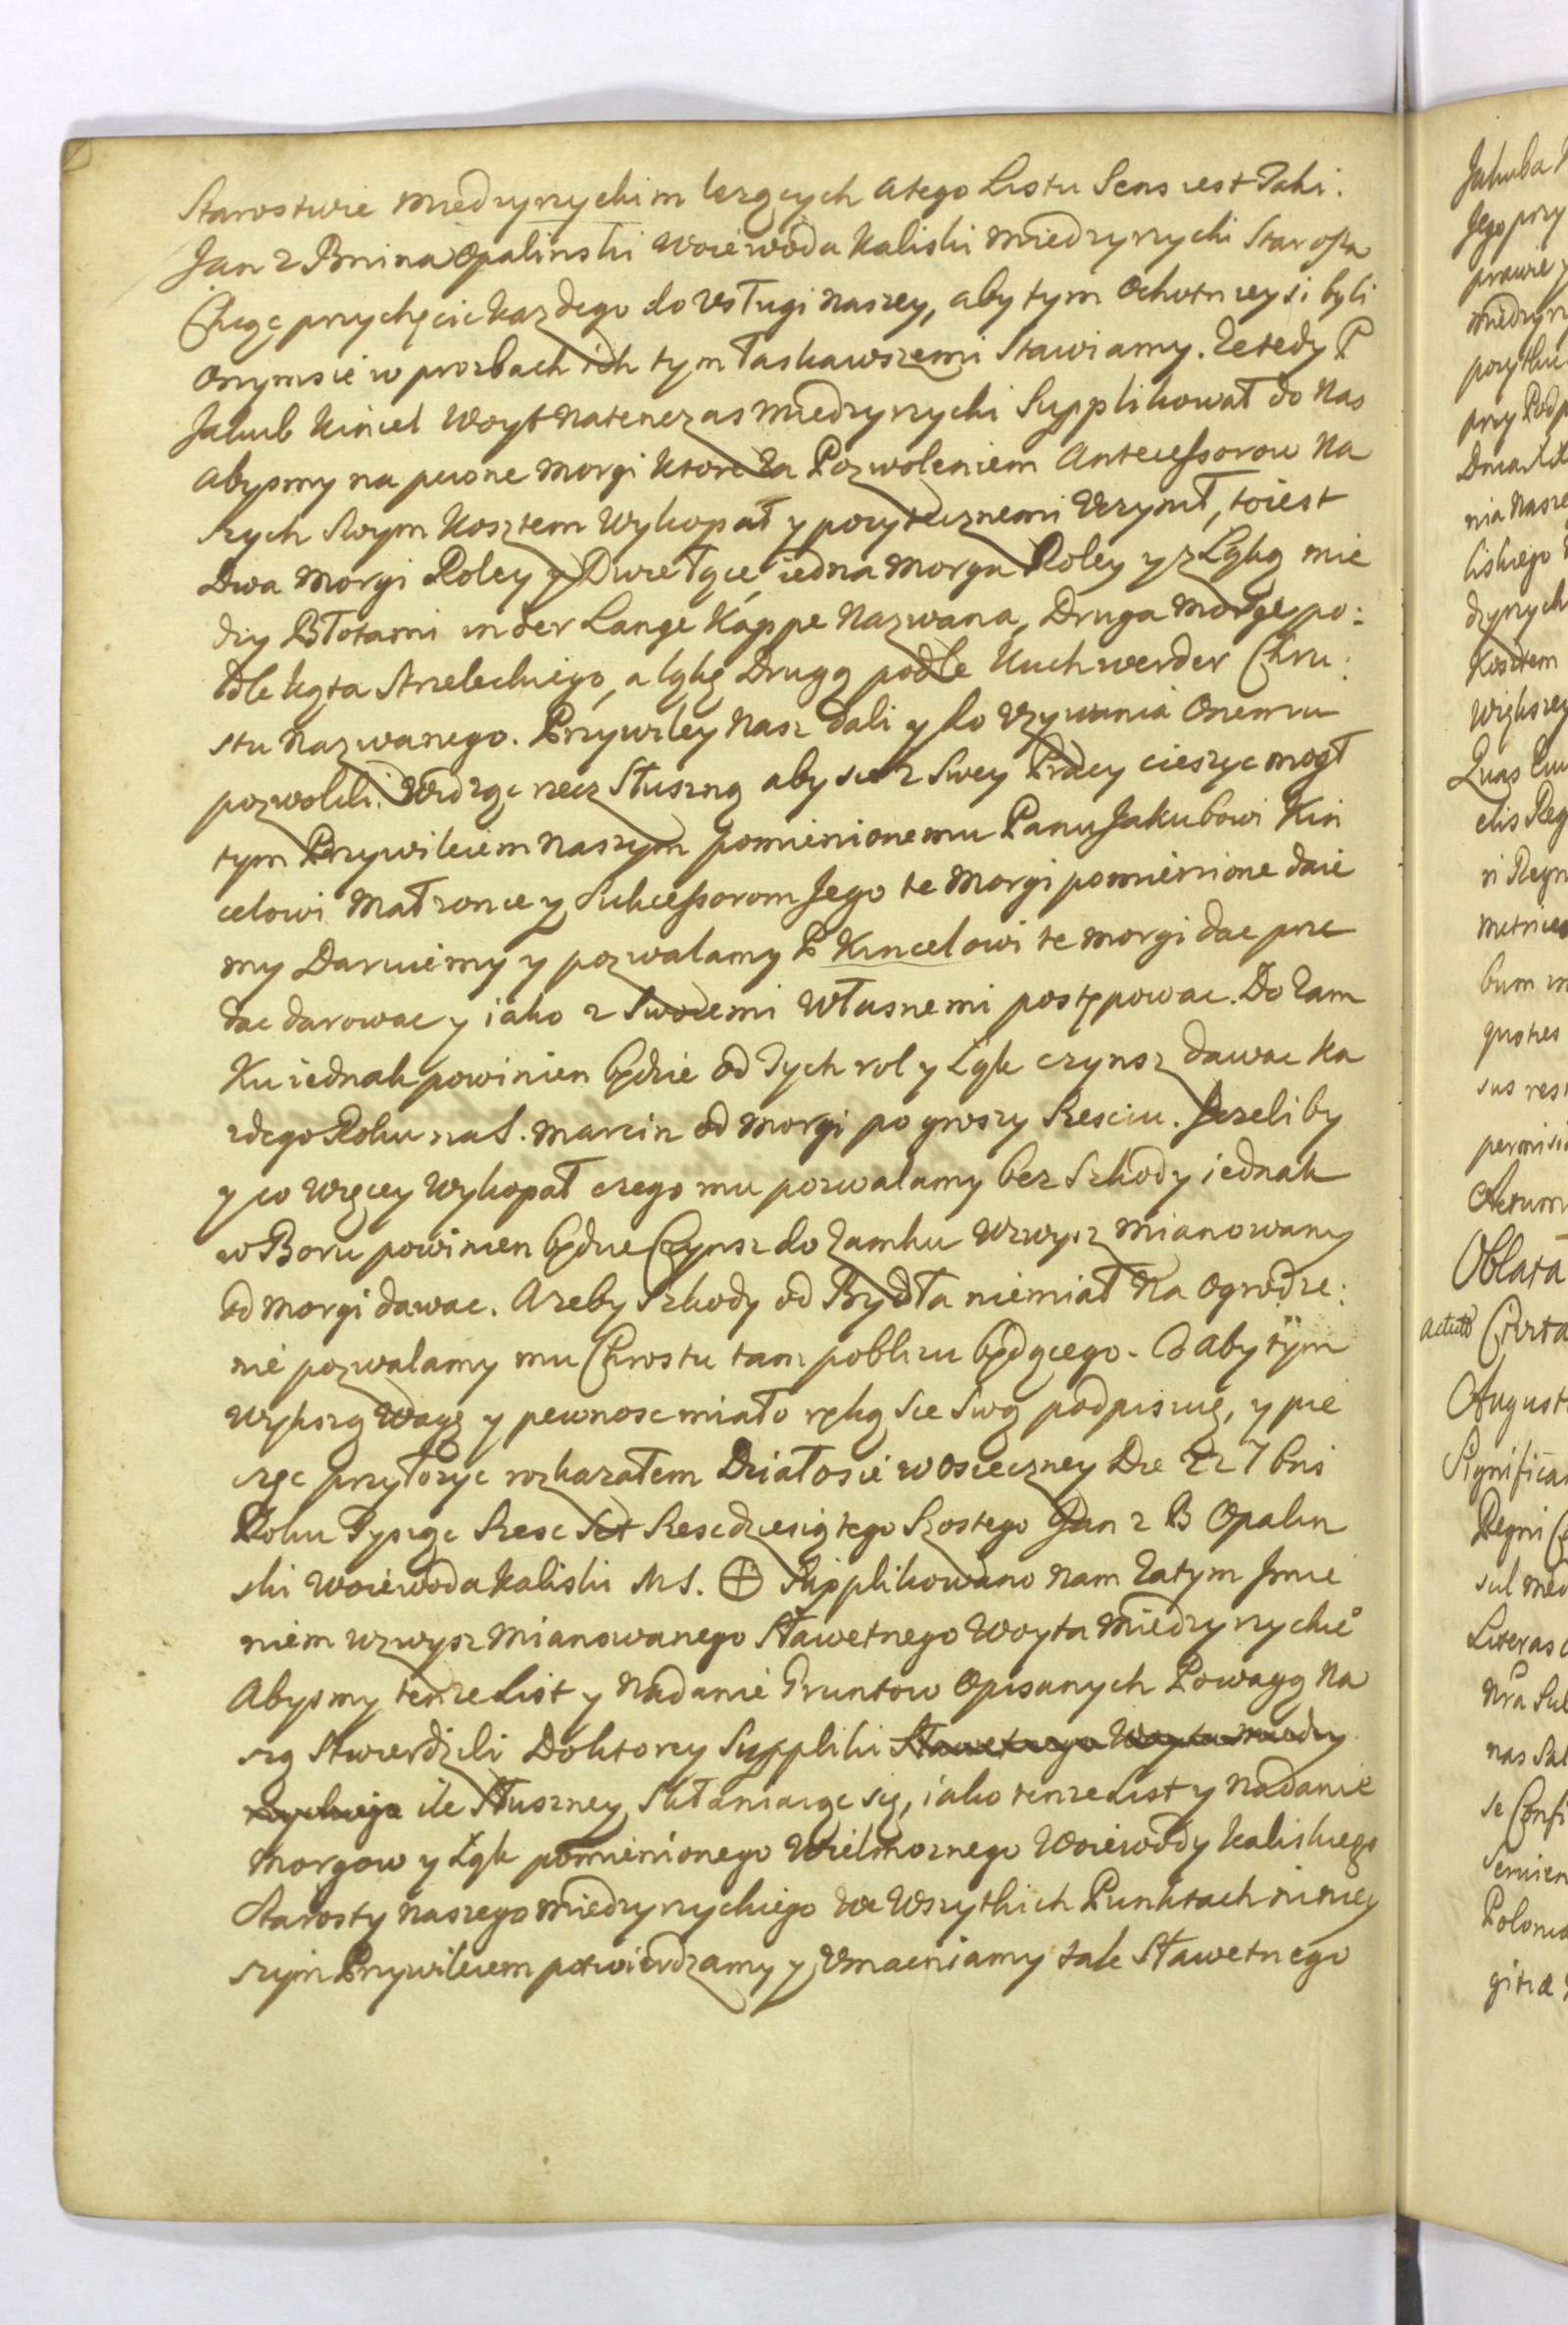 Starostwie miedzyrzyckim lezących atego Listu Sens iest Taki.
Jan z Bnina Opalinski Woiewoda Kaliski miedzyrzycki Starosta
Chcąc przychęcic kazdego do Vsługi naszey, aby tym Ochotnieysi byli
Onymsie w prozbach ich tym łaskawszemi Stawiamy. Ze tedy P
Jakub Kincel Woyt natenczas miedzyrzycki Supplikował do nas
Abysmy na pewne morgi Ktore Za Pozwoleniem Antecessorow Na
szych Swym Kosztem Wykopał y pozytecznemi Vczynił, toiest
Dwa Morgi Roley y Dwie łące, iedna morga Roley y z Łąką mie
dzy Błotami in der Lange Kappe Nazwana, Druga morge po:
dle kąta Strzeleckiego, a łąkę Drugą podle Kuchwerder Chru:
stu nazwanego. Przywiley Nasz dali y do Vzywania Onemu
pozwolili. Widząc rzecz Słuszną aby sie z Swey Pracy cieszyc mogł
tym Przywileiem naszym pomienionemu Panu Jakubowi Kin
celowi Małzonce y Sukcessorom Jego te Morgi pomienione daie
my Daruiemy y pozwalamy P Kincelowi te morgi dac prze
dac darowac y iako z Swoiemi Własnemi postępowac. Do Zam
Ku iednak powinien będzie od Tych rol y Łąk czynsz dawac Ka
zdego Roku na S. Marcin od Morgi po groszy Szesciu. Jezeliby
y co Więcey Wykopał czego mu pozwalamy bez Szkody iednak
w Boru powinien będzie Czynsz do Zamku Wzwysz mianowany
od Morgi dawac. Azeby Szkody od Bydła niemiał Na Ogrodze:
nie pozwalamy mu Chrostu tam poblizu będącego. Co Aby tym
Większą Wagę y pewnosc miało ręką sie Swą podpiszuię, y pie
częc przyłozyc rozkazałem Działosie w Osieczney Die 22 7bris
Roku Tysząc Szesc Set Szescdziesiątego Szostego Jan z B Opalin
ski Woiewoda Kaliski M S. ⊕ Supplikowano nam Zatym Jmie
niem wzwysz Mianowanego Sławetnego Woyta Miedzyrzyckieo
Abysmy tenze List y Nadanie Gruntow Opisanych Powagą Na
szą Stwierdzili Doktorey Suppliki Sławetnego Woyta Miedzy
rzyckiego ile Słuszney Skłaniaiąc się, iako tenze List y Nadanie
Morgow y Łąk pomienionego Wielmoznego Woiewody Kaliskiego
Starosty Naszego Miedzyrzyckiego We Wszytkich Punktach niniey
szym Przywileiem potwierdzamy y Vmacniamy tak Sławetnego